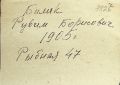 Билик
Рувим Борисович
1905г.
Рыбная 47